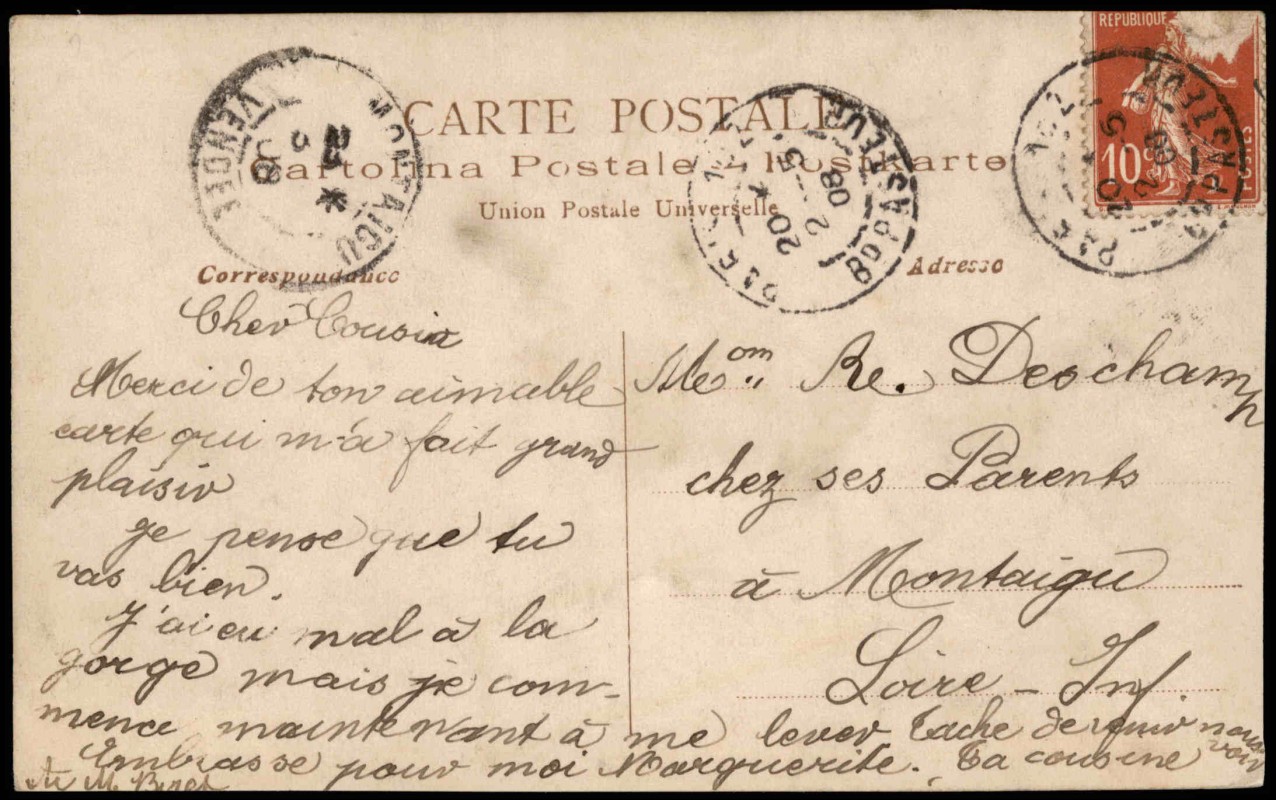 CARTE POSTALE
Cartolina Postale - Postkarte
Union Postale Universelle
Correspondance
Adresse
REPUBLIQUE
10c
POSTES
MONTAIGU
VENDÉE
08
BD PASTEUR
20
2-5
08
BD PASTEUR
20
2-5
08
Cher Cousin
Merci de ton aimable
carte qui m'a fait grand
plaisir
je pense que tu
vas bien.
J'ai eu mal à la
gorge mais je com-
mence maintenant à me lever tache de venir nous
voir
Embrasse pour moi Marguerite. Ta cousine
Deschamp
chez ses Parents
à Montaigu
Loire - Inf.